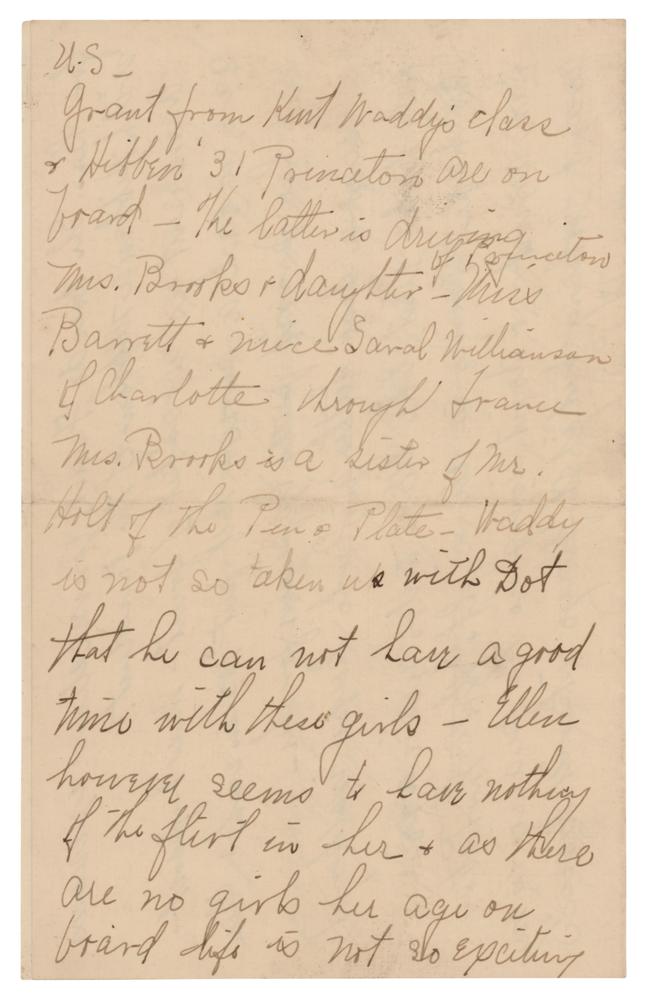 U.S –
Grant from Kent Waddy's class
& Hibben '31 Princeton are on
board – The latter is driving
of Princeton
Mrs. Brooks & daughter – Miss
Barrett & niece Saral Williamson
of Charlotte through France
Mrs. Brooks is a sister of Mr.
Holt of the Pen & Plate – Waddy
is not so taken up with Dot
that he can not have a good
time with these girls – Ellen
however seems to have nothing
of the flirt in her & as there
are no girls her age on
board life is not so exciting